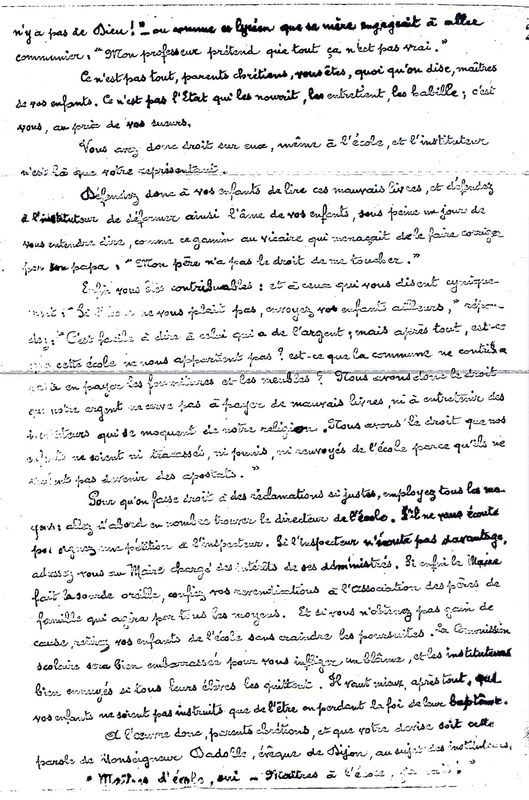 n'y a pas de Dieu !" - ou comme ce lycéen que sa mère engageait à aller
communier : "Mon professeur prétend que tout ça n'est pas vrai."
Ce n'est pas tout, parents chrétiens, vous êtes, quoi qu'on dise, maîtres
de vos enfants. Ce n'est pas l'Etat qui les nourrit, les entretient, les habille ; c'est
vous, au prix de vos sueurs.
Vous avez donc droit sur eux, même à l'école, et l'instituteur
n'est là que votre représentant.
Défendez donc à vos enfants de lire ces mauvais livres, et défendez
à l'instituteur de déformer ainsi l'âme de vos enfants, sous peine un jour de
vous entendre dire, comme ce gamin au vicaire qui menaçait de le faire corriger
par son papa : "Mon père n'a pas le droit de me toucher."
Enfin vous êtes contribuables : et à ceux qui vous disent cynique-
ment : Si l'école ne vous plait pas, envoyez vos enfants ailleurs," répon-
dez : "C'est facile à dire à celui qui a de l'argent ; mais après tout, est-ce
que cette école ne nous appartient pas ? est-ce que la commune ne contribue
pas à en payer les fournitures et les meubles ? Nous avons donc le droit
que notre argent ne serve pas à payer de mauvais livres, ni à entretenir des
instituteurs qui se moquent de notre religion. Nous avons le droit que nos
enfants ne soient ni tracassés, ni punis, ni renvoyés de l'école parce qu'ils ne
veulent pas devenir des apostats."
Pour qu'on fasse droit à des réclamations si justes, employez tous les mo-
yens : allez d'abord en nombre trouver le directeur de l'école. S'il ne vous écoute
pas signez une pétition à l'inspecteur. Si l'inspecteur n'écoute pas davantage,
adressez vous au Maire chargé des intérêts de ses administrés. Si enfin le Maire
fait la sourde oreille, confiez vos revendications à l'association des pères de
famille qui agira par tous les moyens. Et si vous n'obtenez pas gain de
cause, retirez vos enfants de l'école sans craindre les poursuites. La Commission
scolaire sera bien embarrassée pour vous infliger un blâme, et les instituteurs
bien ennuyés si tous leurs élèves les quittent. Il vaut mieux, après tout, que
vos enfants ne soient pas instruits que de l'être en perdant la foi de leur baptême.
A l'œuvre donc, parents chrétiens, et que votre devise soit cette
parole de Monseigneur Dadolle, évêque de Dijon, au sujet des instituteurs,
"Maîtres d'école, oui - Maîtres à l'école,